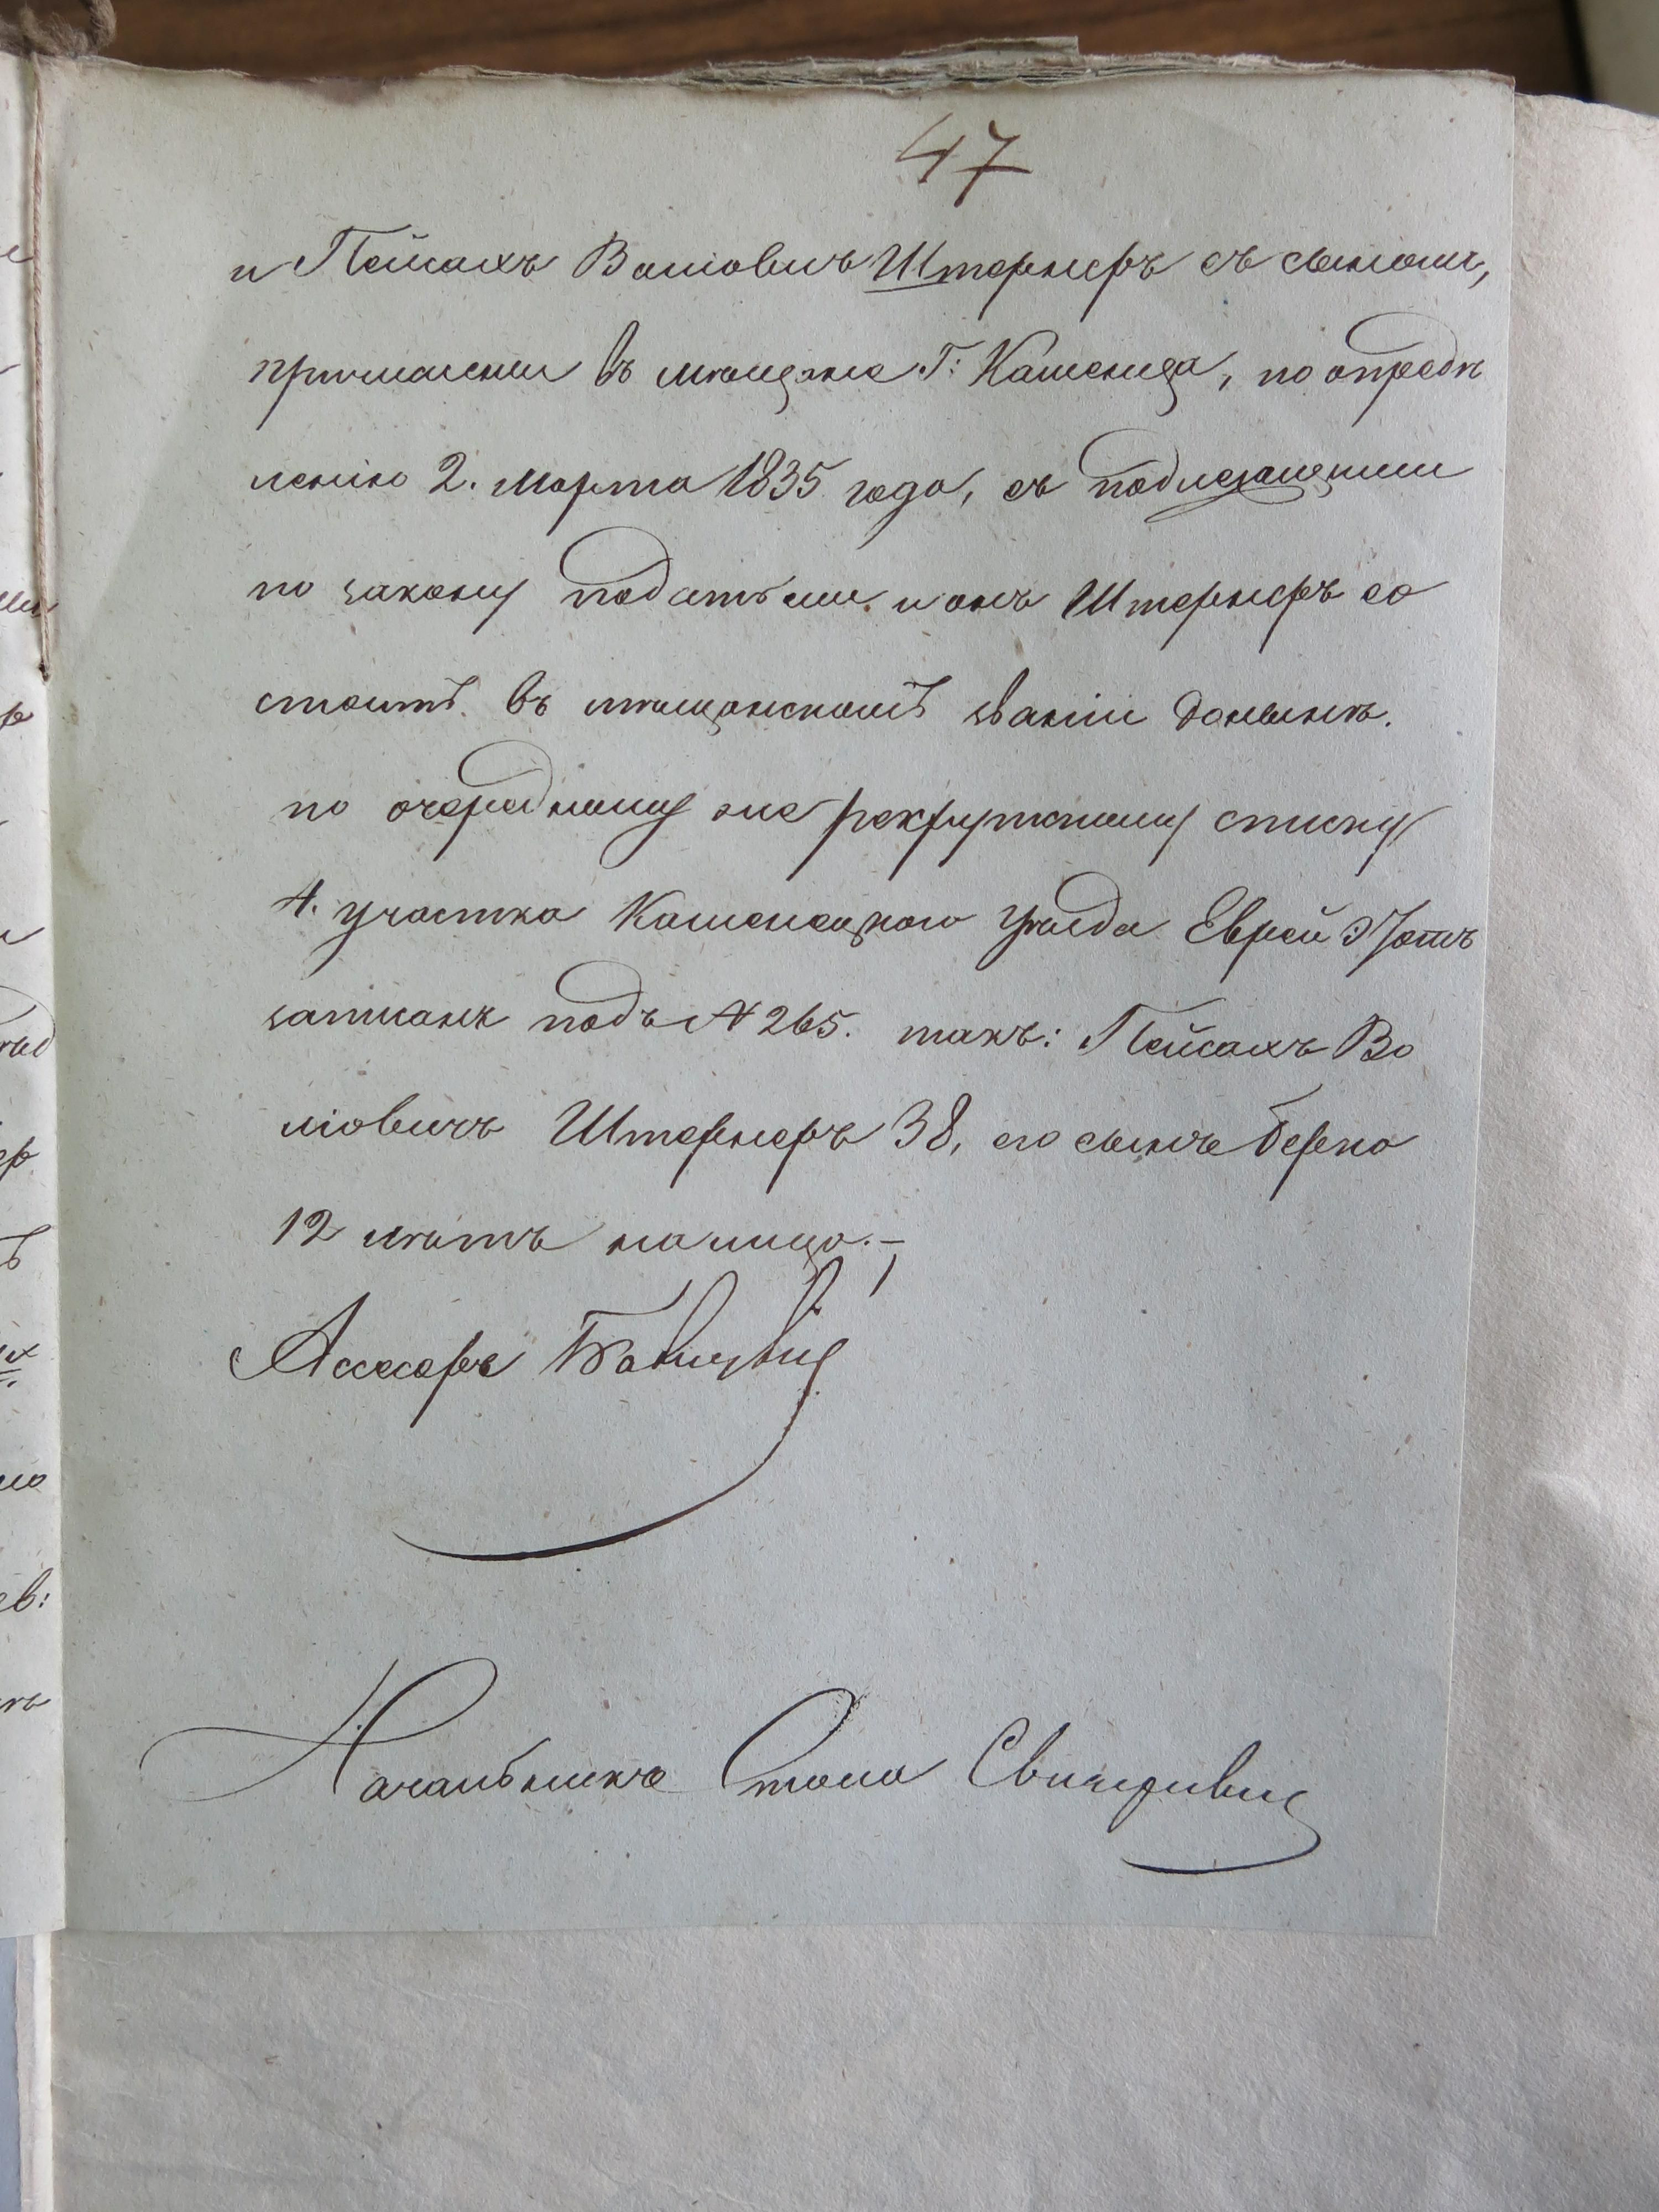 47
и Пейсахъ Волiовичъ Штернеръ съ сыномъ,
причислены въ мѣщане Г: Каменца, по опредѣ
ленiю 2. Марта 1835 года, съ подлежащими
по закону податьми. и онъ Штернеръ со
стоитъ въ мѣщанскомъ званiи донынѣ.
по очередному же рекрутскому списку
4. участка Каменецкаго уѣзда Еврей Этотъ
записанъ подъ № 265. такъ: Пейсахъ Во
лiовичъ Штернеръ 38, его сынъ Берко
12 лѣтъ на лицо.–
Ассесоръ
Начальникъ Стола